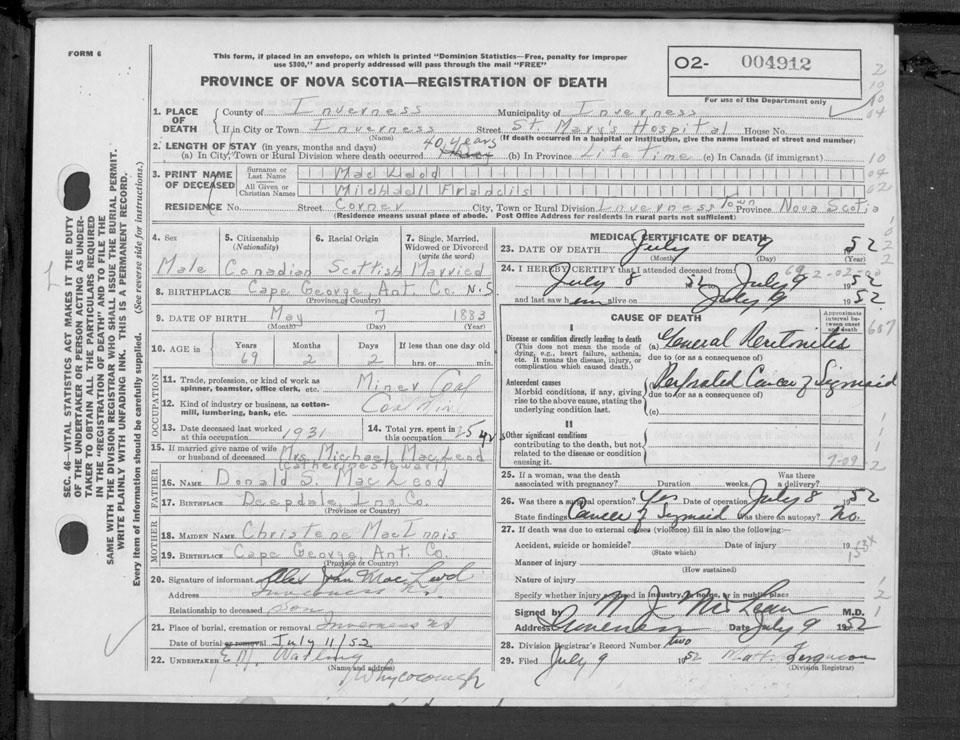 FORM 6
This form, if placed in an envelope, on which is printed "Dominion Statistics—Free, penalty for improper
use $300," and properly addressed will pass through the mail "FREE"
O2- 004912
PROVINCE OF NOVA SCOTIA—REGISTRATION OF DEATH
For use of the Department only
1. PLACE OF DEATH
County of Inverness Municipality of Inverness
If in City or Town Inverness Street St. Marys Hospital House No.
(Name) (If death occurred in a hospital or institution, give the name instead of street and number)
2. LENGTH OF STAY (in years, months and days) 40 years
(a) In City, Town or Rural Division where death occurred (b) In Province Life Time (c) In Canada (if immigrant)
3. PRINT NAME OF DECEASED
Surname or Last Name MacLeod
All Given or Christian Names Michael Francis
RESIDENCE No. Street Corner City, Town or Rural Division Inverness Town Province Nova Scotia
(Residence means usual place of abode. Post Office Address for residents in rural parts not sufficient)
4. Sex 5. Citizenship (Nationality) 6. Racial Origin 7. Single, Married, Widowed or Divorced (write the word)
Male Canadian Scottish Married
8. BIRTHPLACE Cape George, Ant. Co. N.S
(Province or Country)
9. DATE OF BIRTH May 7 1883
(Month) (Day) (Year)
10. AGE is Years Months Days If less than one day old
69 2 2 hrs. or min.
OCCUPATION
11. Trade, profession, or kind of work as spinner, teamster, office clerk, etc. Miner Coal
12. Kind of industry or business, as cotton-mill, lumbering, bank, etc. Coal Mine
13. Date deceased last worked at this occupation 1931
14. Total yrs. spent in this occupation 25 yrs
15. If married give name of wife or husband of deceased Mrs. Michael MacLeod
(Catherine Stewart)
FATHER
16. NAME Donald S. MacLeod
17. BIRTHPLACE Deepdale Inv. Co.
(Province or Country)
MOTHER
18. MAIDEN NAME Christene MacInnis
19. BIRTHPLACE Cape George, Ant. Co.
(Province or Country)
20. Signature of informant Alex John MacLeod
Address Inverness N.S
Relationship to deceased Son
21. Place of burial, cremation or removal Inverness NS
Date of burial or removal July 11/52
22. UNDERTAKER E M. Watling
(Name and address)
Whycocomagh
MEDICAL CERTIFICATE OF DEATH
23. DATE OF DEATH July 9 1952
(Month) (Day)
24. I HEREBY CERTIFY that I attended deceased from:
July 8 1952 July 9 1952
and last saw him alive on July 9 1952
CAUSE OF DEATH
Approximate interval between onset and death
I
Disease or condition directly leading to death
(This does not mean the mode of dying, e.g., heart failure, asthenia, etc. It means the disease, injury, or complication which caused death.)
(a) General Peritonitis
due to (or as a consequence of)
Antecedent causes
Morbid conditions, if any, giving rise to the above cause, stating the underlying condition last.
Perforated Cancer of Sigmoid
due to (or as a consequence of)
(c)
II
Other significant conditions
contributing to the death, but not related to the disease or condition causing it.
25. If a woman, was the death associated with pregnancy? Duration weeks. Was there a delivery?
26. Was there a surgical operation? Yes Date of operation July 8 1952
State findings Cancer of Sigmoid Was there an autopsy? No.
27. If death was due to external causes (violence) fill in also the following:—
Accident, suicide or homicide? Date of injury 19
(State which)
Manner of injury
(How sustained)
Nature of injury
Specify whether injury occurred in industry, in home, or in public place
Signed by N. J. McLean M.D.
Address Inverness Date July 9 1952
28. Division Registrar's Record Number two
29. Filed July 9 1952 Mat. Ferguson
(Division Registrar)
SEC. 46—VITAL STATISTICS ACT MAKES IT THE DUTY
OF THE UNDERTAKER OR PERSON ACTING AS UNDER-
TAKER TO OBTAIN ALL THE PARTICULARS REQUIRED
IN THE "REGISTRATION OF DEATH" AND TO FILE THE
SAME WITH THE DIVISION REGISTRAR WHO SHALL ISSUE THE BURIAL PERMIT.
WRITE PLAINLY WITH UNFADING INK. THIS IS A PERMANENT RECORD.
Every item of information should be carefully supplied. (See reverse side for instructions.)